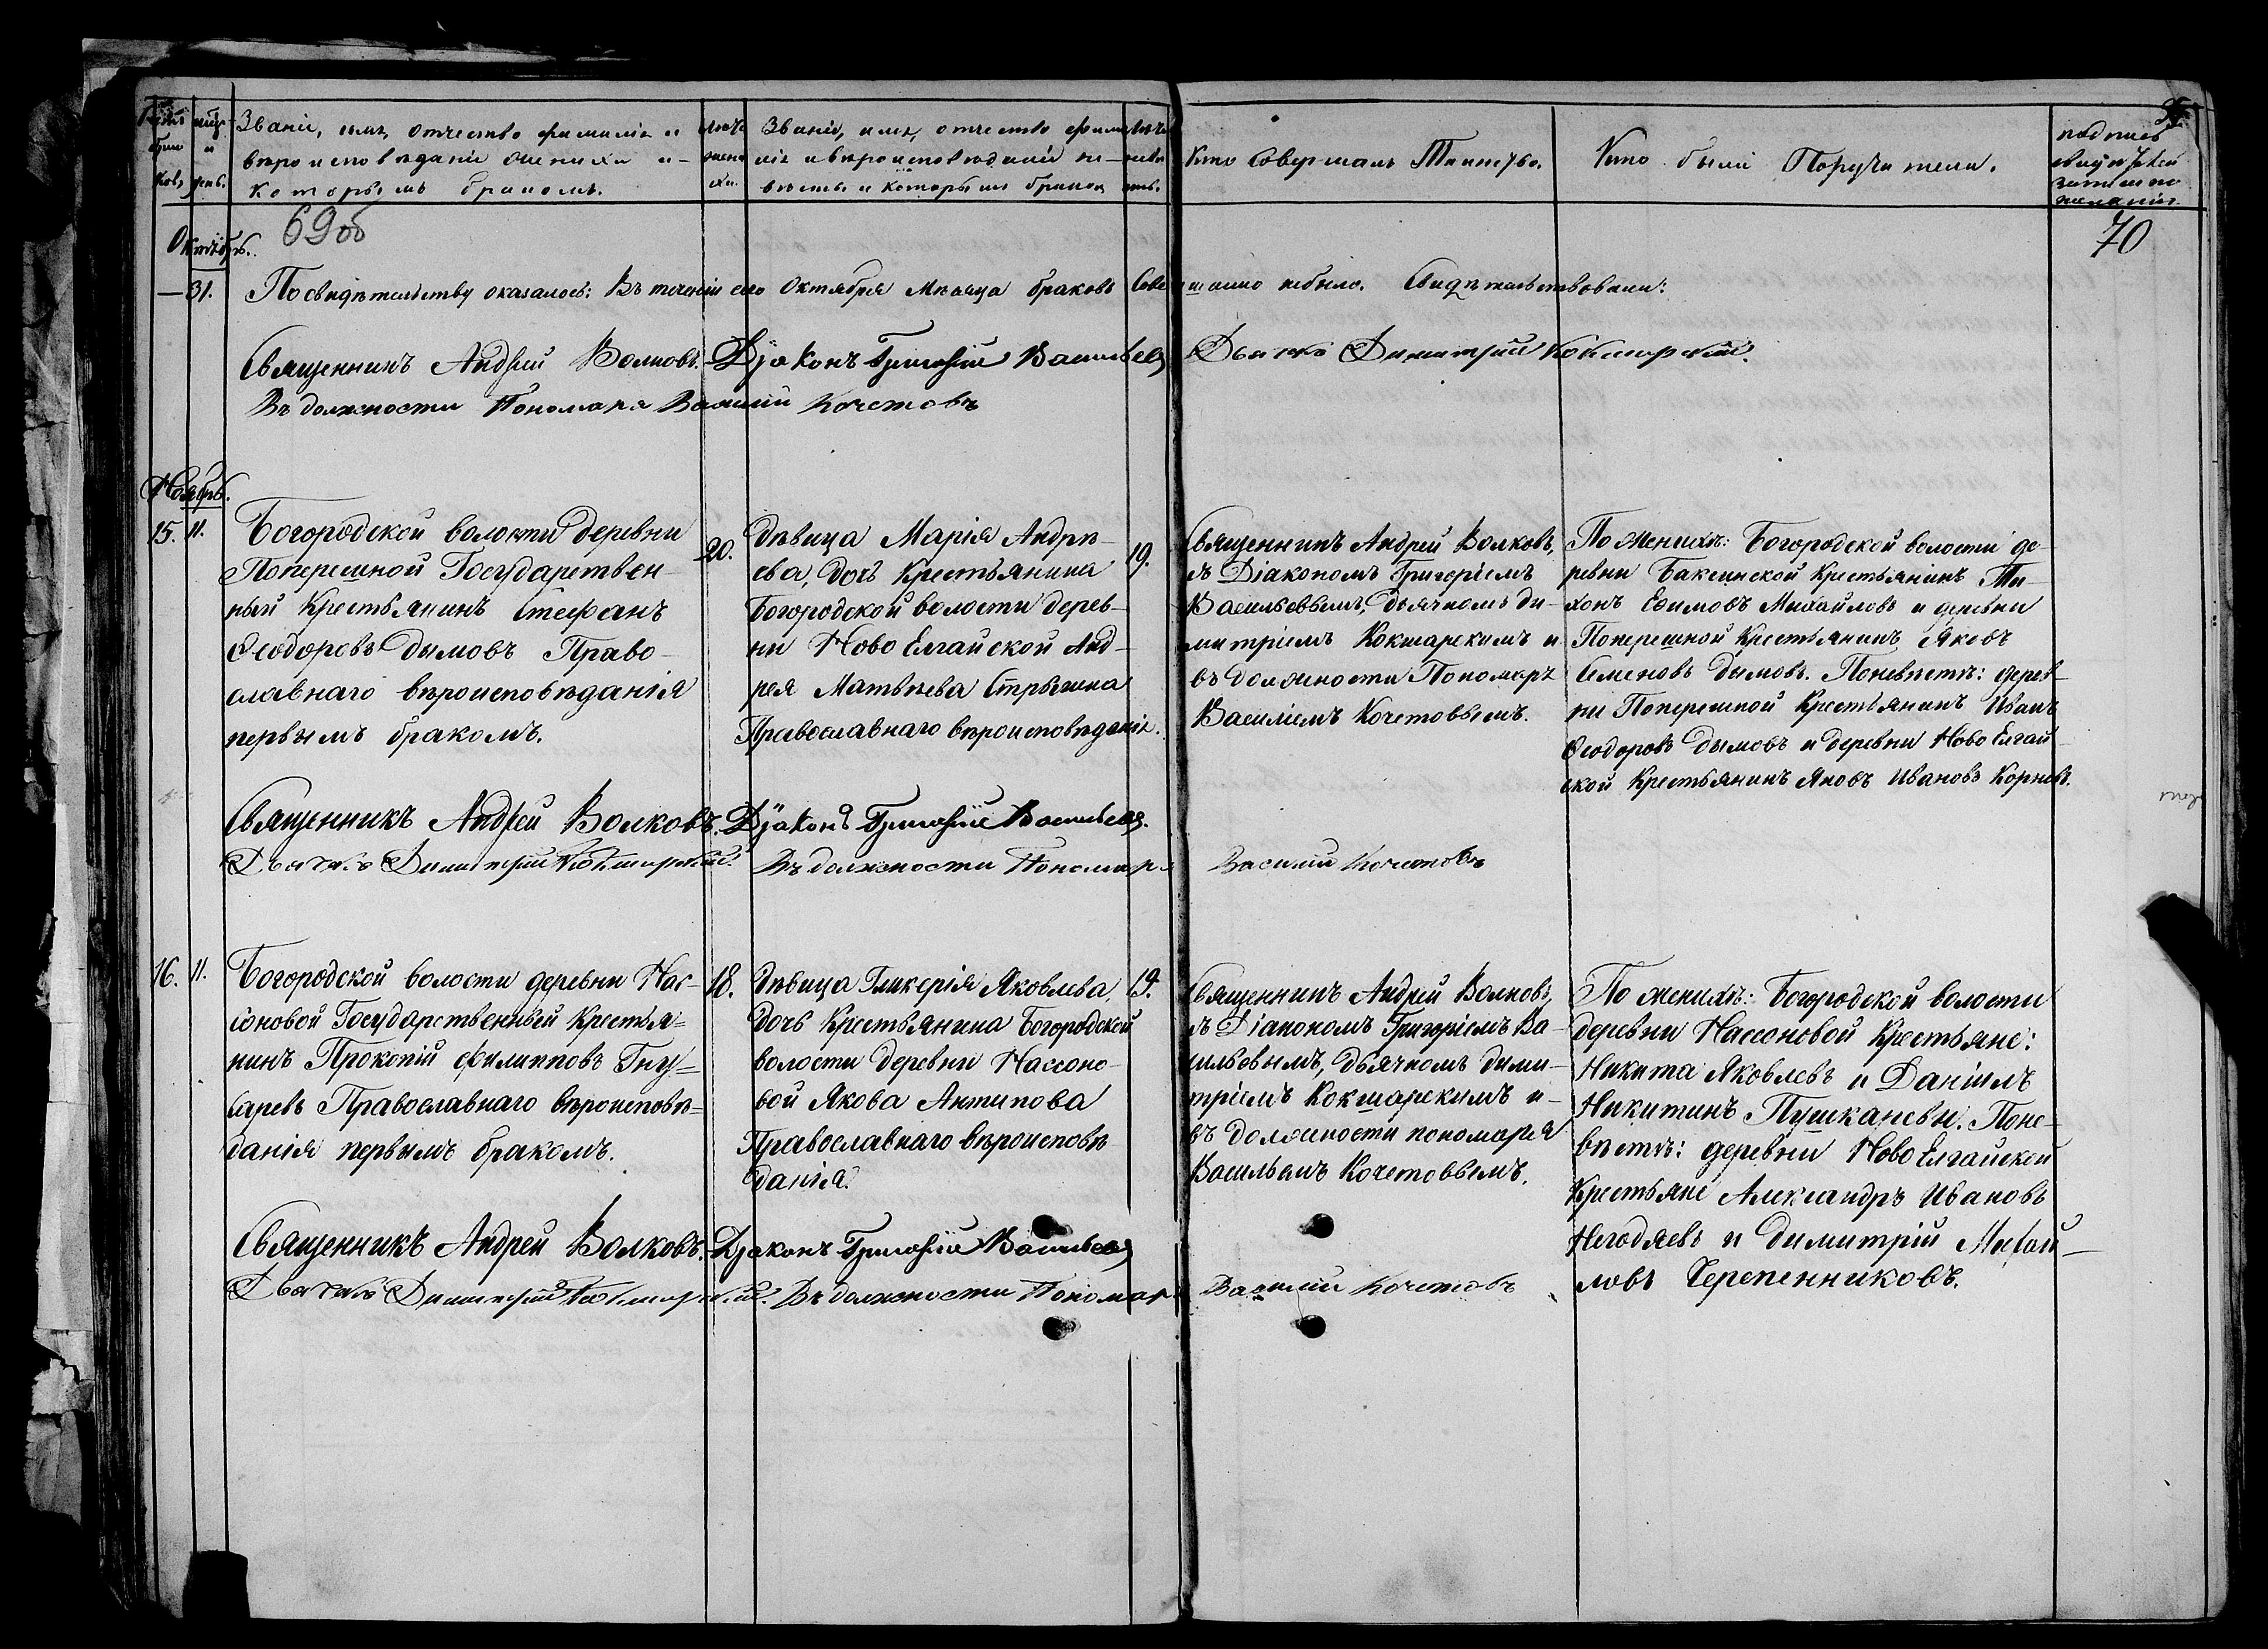 Счетъ браковъ
мѣсяцъ и день.
Званіе, имя, отчество фамилія и
вѣроисповѣданіе жениха и
которымъ бракомъ.
лѣта жениха.
Званіе, имя, отчество фами-
лія и вѣроисповѣданіе не-
вѣсты и которымъ бракомъ
лѣта невѣсты.
Кто Совершалъ Таинство.
Кто были Поручители.
подпись
свидѣтелей
записи по
желанію.
69 об
70
Октябрь.
— 31.
По свидѣтельству оказалось: Въ теченіи сего Октября Мѣсяца браковъ Совершано небыло. Свидѣтельствовали:
Священникъ Андрей Волковъ. Діаконъ Григорій Васильевъ Дьячекъ Димитрій Кокшарскій.
Въ должности Пономаря Василій Кочетовъ
Ноябрь.
15. 11.
Богородской волости деревни
Поперешной Государствен-
ный Крестьянинъ Стефанъ
Ѳеодоровъ Дымовъ Право-
славнаго вѣроисповѣданія
первымъ бракомъ.
20.
Дѣвица Марія Андрѣ-
ева, дочь Крестьянина
Богородской волости дерев-
ни Ново Елгайской Анд-
рея Матвѣева Стрѣжена
Православнаго вѣроисповѣданія.
19.
Священникъ Андрей Волковъ,
съ Діакономъ Григоріемъ
Васильевымъ, дьячкомъ Ди-
митріемъ Кокшарскимъ и
въ должности Пономаря
Василіемъ Кочетовымъ.
По женихѣ: Богородской волости де-
ревни Баксинской Крестьянинъ Ти-
хонъ Ефимовъ Михайловъ и деревни
Поперешной Крестьянинъ Яковъ
Семеновъ Дымовъ. Поневѣстѣ: дерев-
ни Поперешной Крестьянинъ Иванъ
Ѳеодоровъ Дымовъ и деревни Ново Елгай-
ской Крестьянинъ Яковъ Ивановъ Корневъ.
Священникъ Андрей Волковъ. Діаконъ Григорій Васильевъ.
Дьячекъ Димитрій Кокшарскій. Въ должности Пономаря Василій Кочетовъ
16. 11.
Богородской волости деревни Нас-
соновой Государственный Крестья-
нинъ Прокопій Филипповъ Гну-
саревъ Православнаго вѣроисповѣ-
данія первымъ бракомъ.
18.
Дѣвица Гликерія Яковлева,
дочь Крестьянина Богородской
волости деревни Нассоно-
вой Якова Антипова
Православнаго вѣроисповѣ
данія.
19.
Священникъ Андрей Волковъ,
съ Діакономъ Григоріемъ Ва-
сильевымъ, дьячкомъ Дими-
тріемъ Кокшарскимъ и
въ должности пономаря
Васильемъ Кочетовымъ.
По женихѣ: Богородской волости
деревни Нассоновой Крестьяне:
Никита Яковлевъ и Даніилъ
Никитинъ Пушкаревы. Поне-
вѣстѣ: деревни Ново Елгайской
Крестьяне Александръ Ивановъ
Негодяевъ и Димитрій Михай-
ловъ Черепенниковъ.
Священникъ Андрей Волковъ. Діаконъ Григорій Васильевъ
Дьячекъ Димитрій Кокшарскій. Въ должности Пономаря Василій Кочетовъ